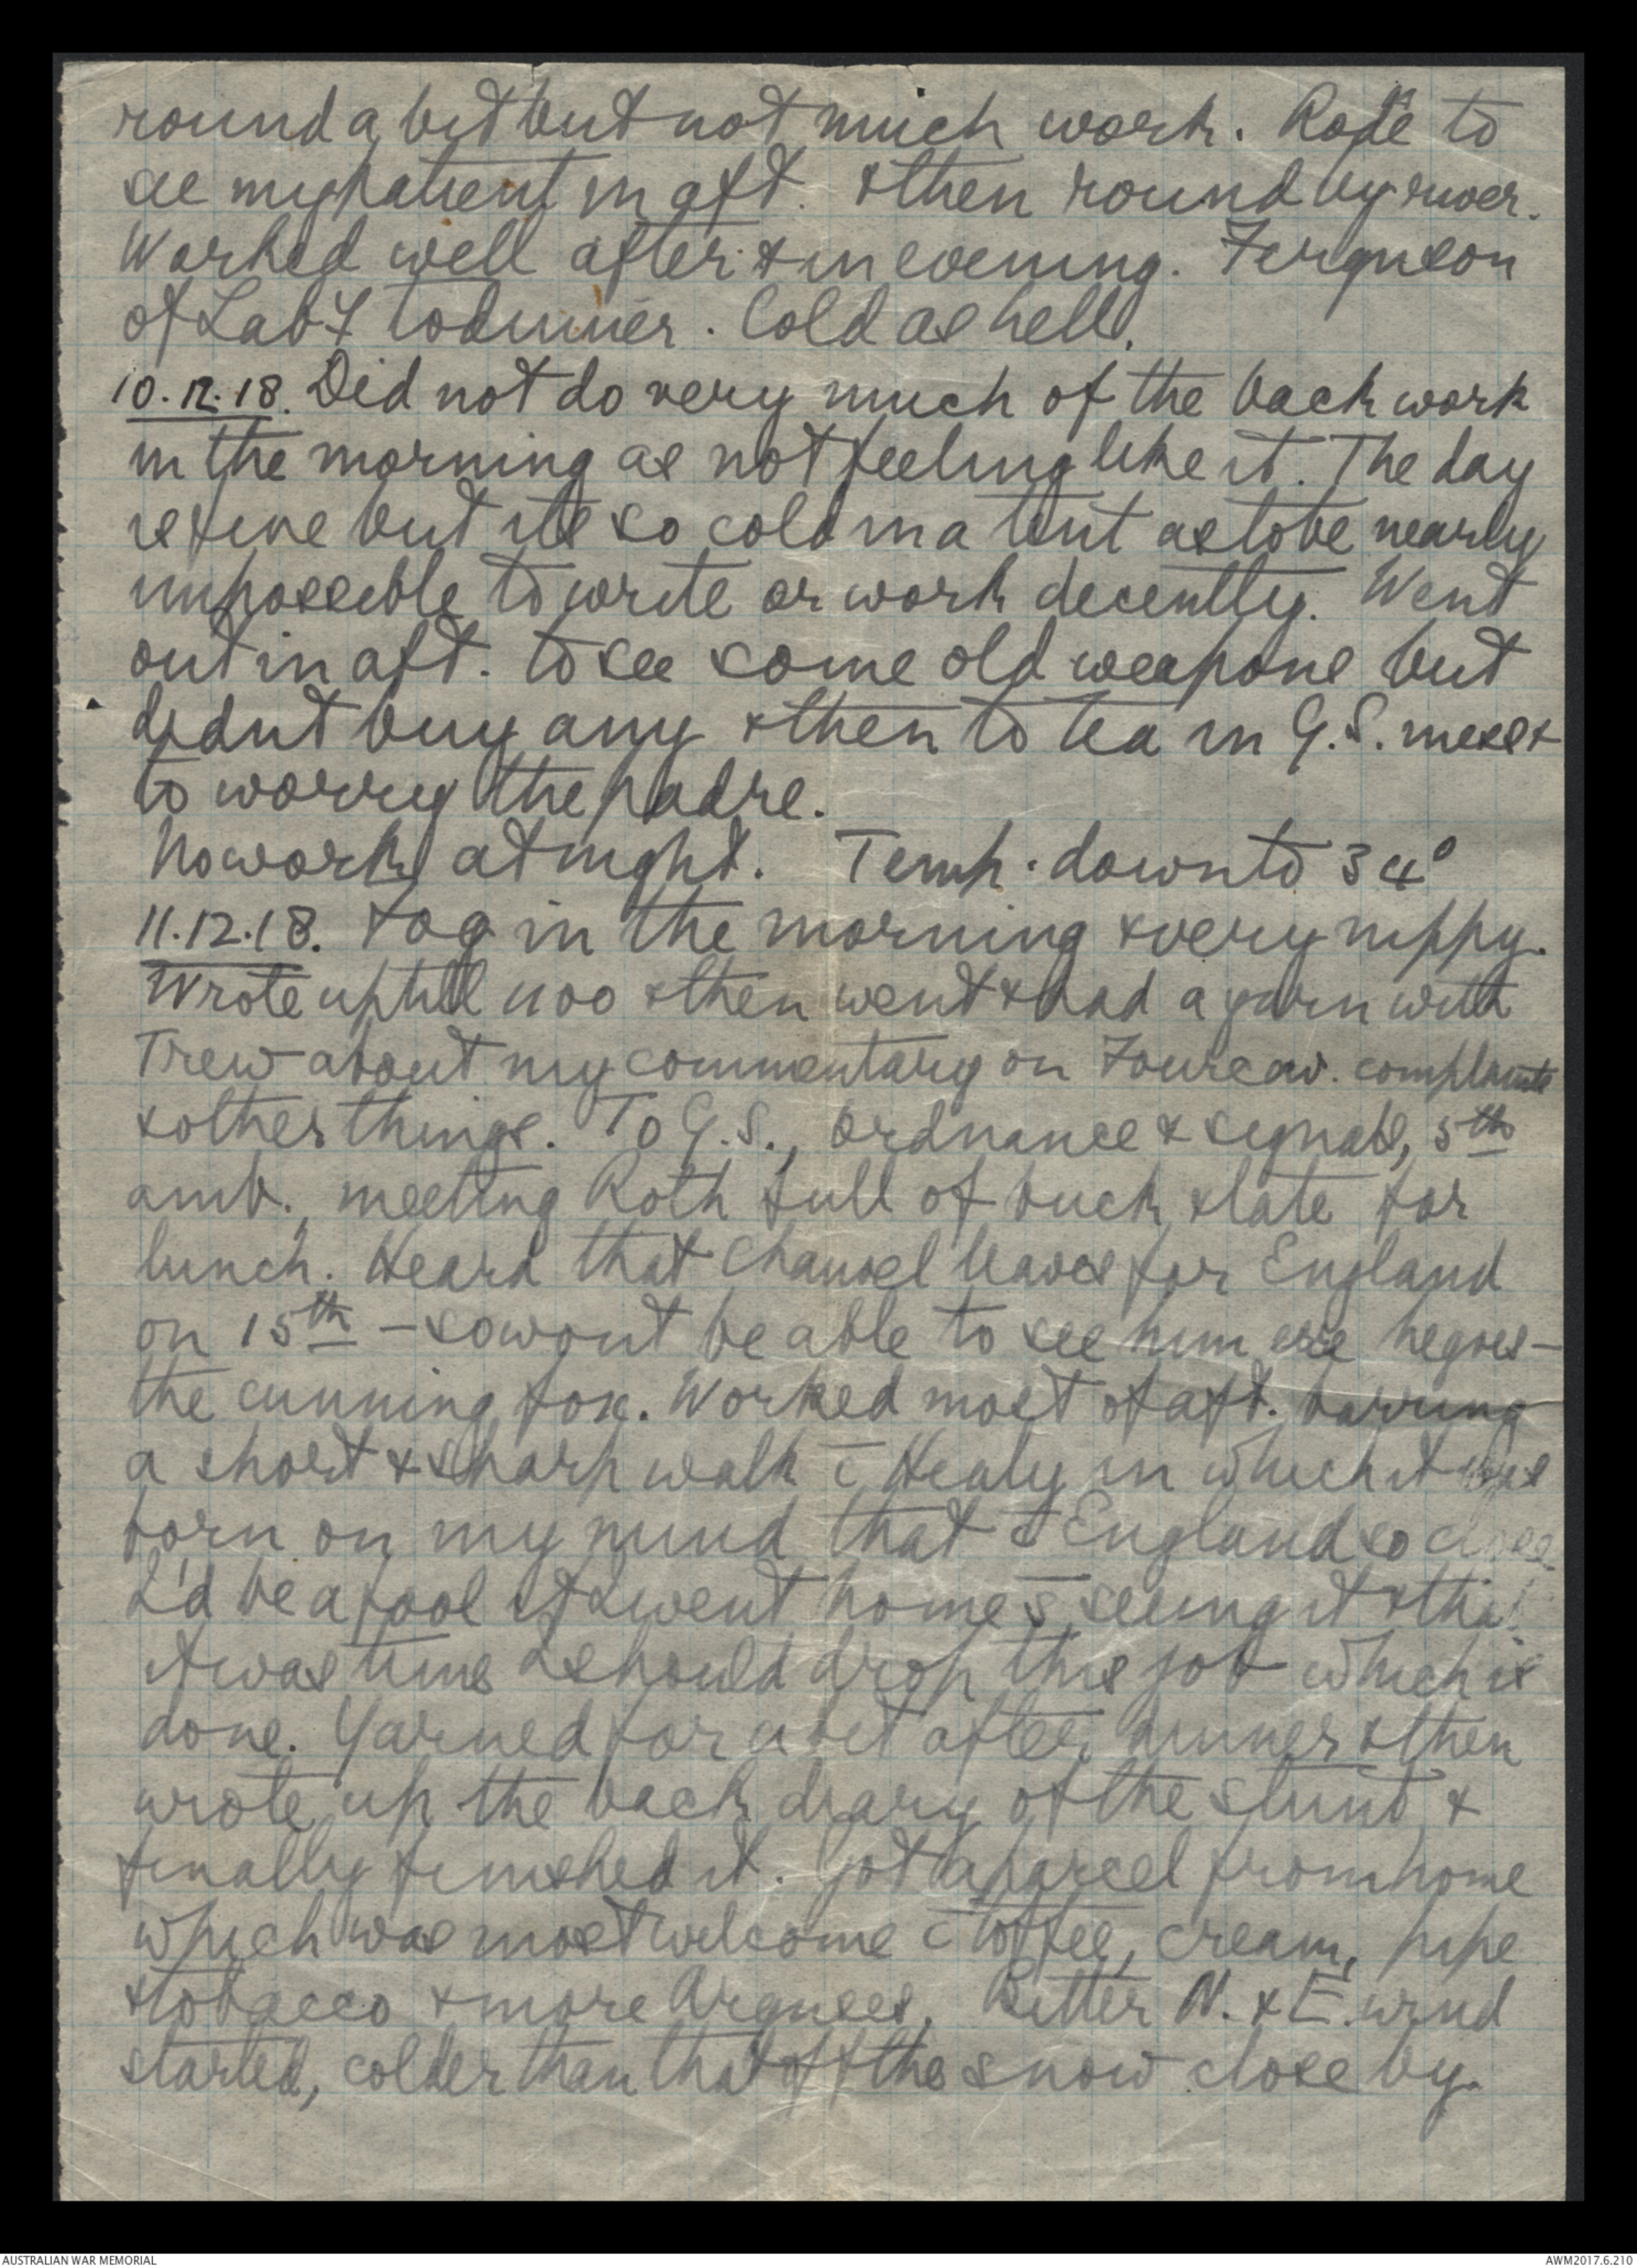 round a bit but not much work. Rode to
see my patient in aft. & then round by river.
Worked well after & in evening. Ferguson
of Lab 7 to dinner. Cold as hell.
10.12.18. Did not do very much of the back work
in the morning as not feeling like it. The day
is fine but its so cold in a tent as to be nearly
impossible to write or work decently. Went
out in aft. to see some old weapons but
didnt buy any & then to tea in G.S. mess &
to worry the padre.
No work at night. Temp. down to 34°
11.12.18. Fog in the morning & very nippy.
Wrote uptill 1100 & then went & had a yarn with
Trew about my commentary on complaints
& other things. To G.S., Ordnance & signals, 5th
amb., meeting Roth full of buck & late for
lunch. Heard that Chauvel leaves for England
on 15th – so wont be able to see him ere he goes –
the cunning fox. Worked most of aft. barring
a short & sharp walk c̄ Healy in which it was
born on my mind that c̄ England so close
I'd be a fool if I went home s̄ seeing it & that
it was time I should drop this job which is
done. Yarned for a bit after dinner & then
wrote up the back diary of the stunt &
finally finished it. Got a parcel from home
which was most welcome c̄ toffee, cream, pipe
& tobacco & more Arguses. Bitter N. & E. wind
started, colder than that off the snow close by.
AUSTRALIAN WAR MEMORIAL
AWM2017.6.210